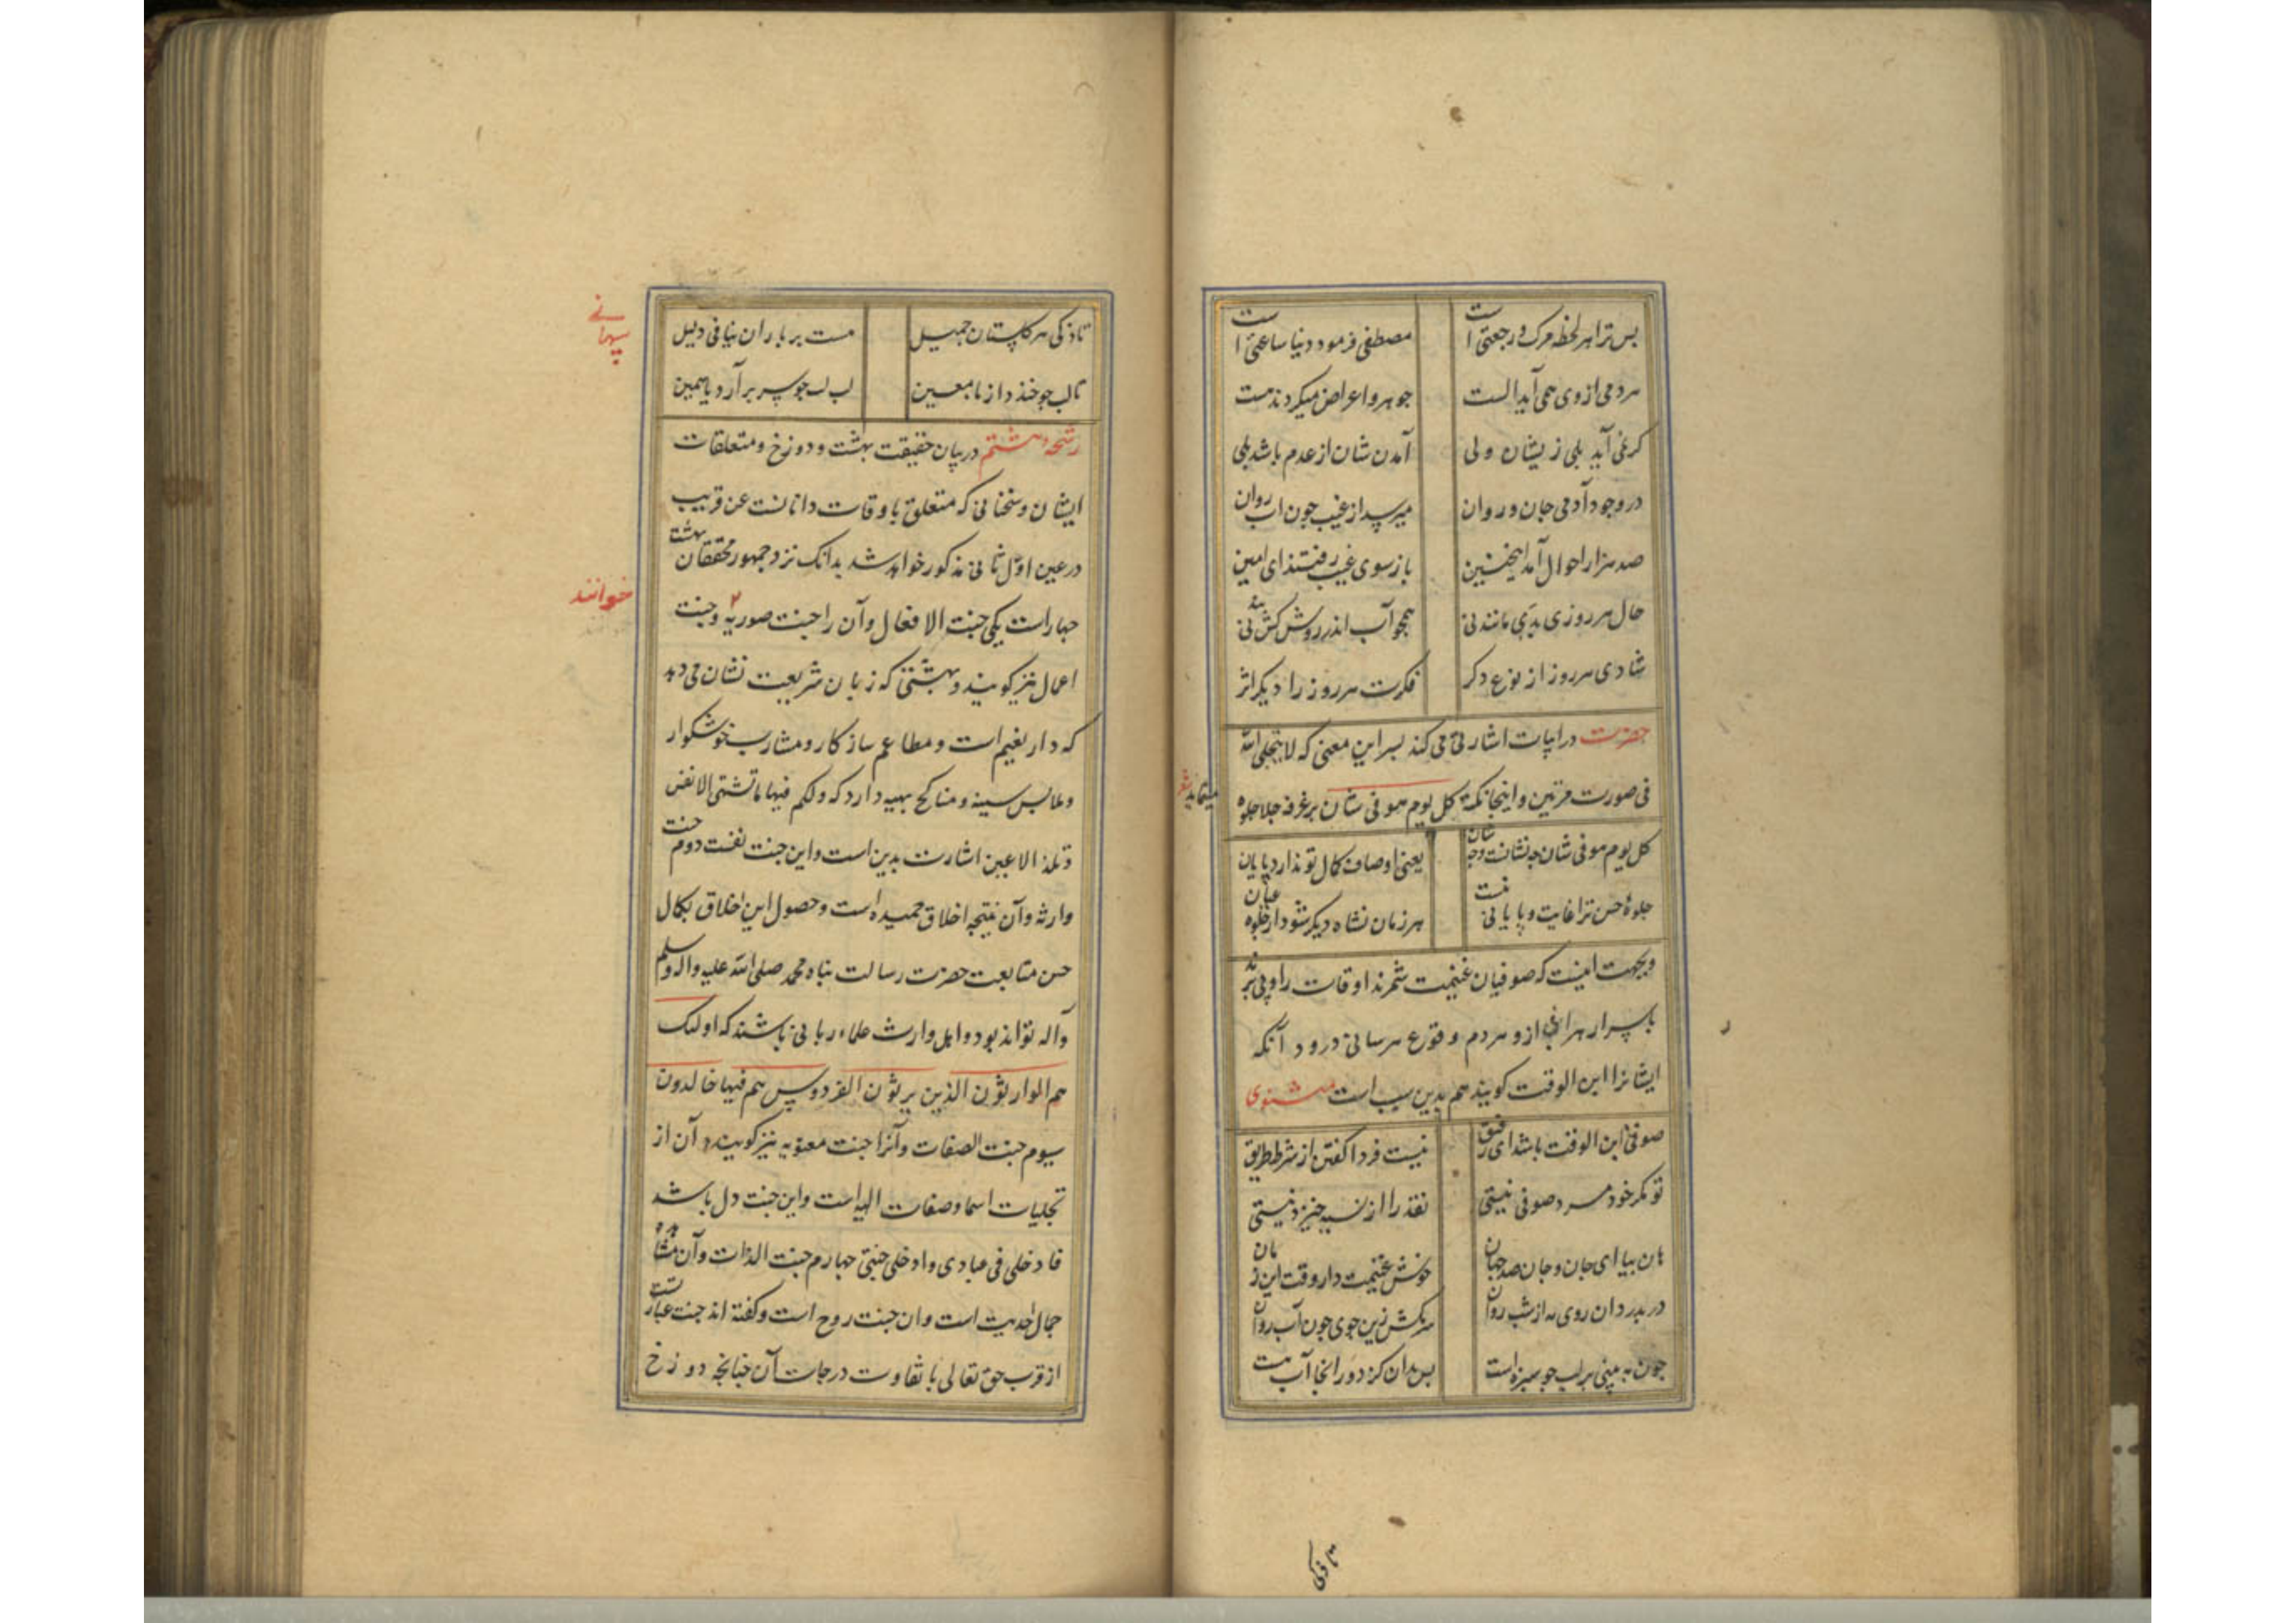 بس ترا هر لحظه مرک و رجعتی است مصطفی فرمود دنیا ساعتی است
هر دمی از وی همی آید الست جوهر و اعراض میکردند مست
کر نمی آید بلی زیشان ولی آمدن شان از عدم باشد بلی
در وجود آدمی جان و روان میرسد از غیب جون اب روان
صد هزار احوال آمد اینچنین باز سوی غیب رفتند ای امین
حال هر روزی بدی مانند نی همجو آب اندر روش کش بند نی
شادی هر روز از نوع دکر فکرت هر روز را دیکر اثر
حضرت در ابیات اشارتی می کند بسر این معنی که لا یتجلی الله
فی صورت مرتین و اینجا نکته کل یوم هو فی شان بر غرفه جلا جلوه
مینماید شعر
کل یوم هو فی شان چه نشانست و چه شان یعنی اوصاف کمال تو ندارد پایان
جلوهٔ حسن ترا غایت و پایانی نیست هر زمان نشاه دیکر شود از جلوه عیان
و بجهت اینست که صوفیان غنیمت شمرند اوقات را و پی برند
باسرار هر آنی از و هر دم و قوع هر سانی درود آنکه
ایشانرا ابن الوقت کویند هم بدین سبب است مثنوی
صوفی ابن الوقت باشد ای رفیق نیست فردا کفتن از شرط طریق
تو مکر خود مرد صوفی نیستی نقد را از نسیه خیزد نیستی
هان بیا ای جان و جان صد جهان خوش غنیمت دار وقت این زمان
در مدزدان روی مه از شب روان سر مکش زین جوی جون آب روان
جون به بینی بر لب جو سبزه است بس بدان کز دور انجا آب هست
تازکی
تازکی هر کلستان جمیل هست بر باران پنهانی دلیل
تا لب جو خندد از ما معین لب لب جو سر برآرد یاسمین
رشحه هشتم در بیان حقیقت بهشت و دوزخ و متعلقات
ایشان و سخنانی که متعلق باوقات دانانست عن قریب
در عین اول ثانی مذکور خواهد شد بدانک نزد جمهور محققان بهشت
چهار است یکی جنت الافعال و آن را جنت صوریه و جنت
خوانند
اعمال نیز کویند و بهشتی که زبان شریعت نشان می دهد
که دار نعیم است و مطاعم سازکار و مشارب خوشکوار
و ملابس سنیه و مناکح بهیه دارد که ولکم فیها ما تشتهی الانفس
و تلذ الاعین اشارت بدین است و این جنت نفست دوم جنت
وارثه و آن نتیجه اخلاق حمیده است و حصول این اخلاق بکمال
حسن متابعت حضرت رسالت پناه محمد صلی الله علیه واله وسلم
وآله تواند بود و اهل وارث علماء ربانی باشند که اولئک
هم الوارثون الذین یرثون الفردوس هم فیها خالدون
سیوم جنت الصفات و آنرا جنت معنویه نیز کویند و آن از
تجلیات اسما و صفات الهیه است و این جنت دل باشد
فادخلی فی عبادی وادخلی جنتی چهارم جنت الذات و آن مشاهده
جمال احدیت است و ان جنت روح است و کفته اند جنت عبارتست
از قرب حق تعالی با تفاوت درجات آن چنانچه دوزخ